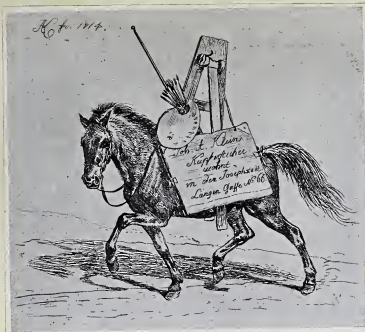 fec. 1814.
Joh: A. Klein
Kupferstecher
wohnt
in der Josephstadt
Langen Gasse No 66